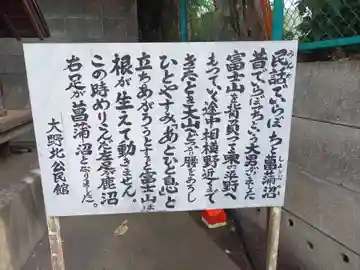 民話でいらぼっちと菖蒲沼
しょうぶぬま
昔でいらぼっちという大男がいました
富士山を背負って東の平野へ
もっていく途中相模野近くまで
きたとき大山へ腰をおろし
ひとやすみ。あとひと息と
立ちあがろうとすると富士山は
根が生えて動きません。
この時めりこんだ左足が鹿沼
右足が菖蒲沼となりました。
大野北公民館